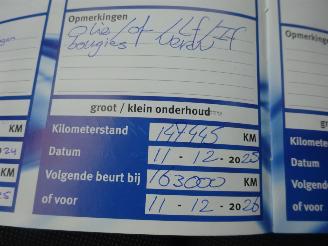 Opmerkingen
olie/of/lf/If
bougies Verv
groot / klein onderhoud
Kilometerstand 147445 KM
Datum 11 - 12 - 2025
Volgende beurt bij 163000 KM
of voor 11 - 12 - 2026
KM
Opmerkin
Kilometers
Datum
Volgende
of voor